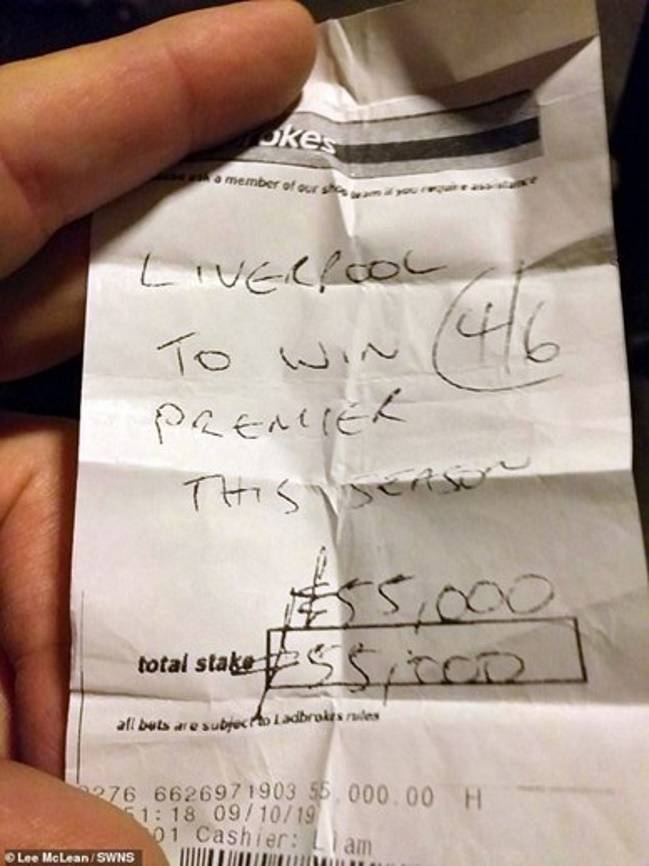 okes
ask a member of our shop team if you require assistance
LIVERPOOL
TO WIN 4/6
PREMIER
THIS SEASON
£55,000
total stake £55,000
all bets are subject to Ladbrokes rules
0276 6626971903 55,000.00 H
1:18 09/10/19
01 Cashier: Liam
© Lee McLean / SWNS